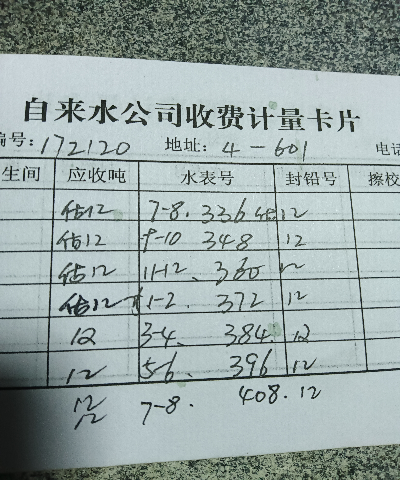 自来水公司收费计量卡片
编号: 172120 地址: 4-601 电话
生间 应收吨 水表号 封铅号 擦校
估12 7-8. 336 估12
估12 9-10 348 12
估12 11-12. 360 12
估12 1-2. 372 12
12 3-4. 384. 12
12 5-6. 396 12
12 7-8. 408. 12
12